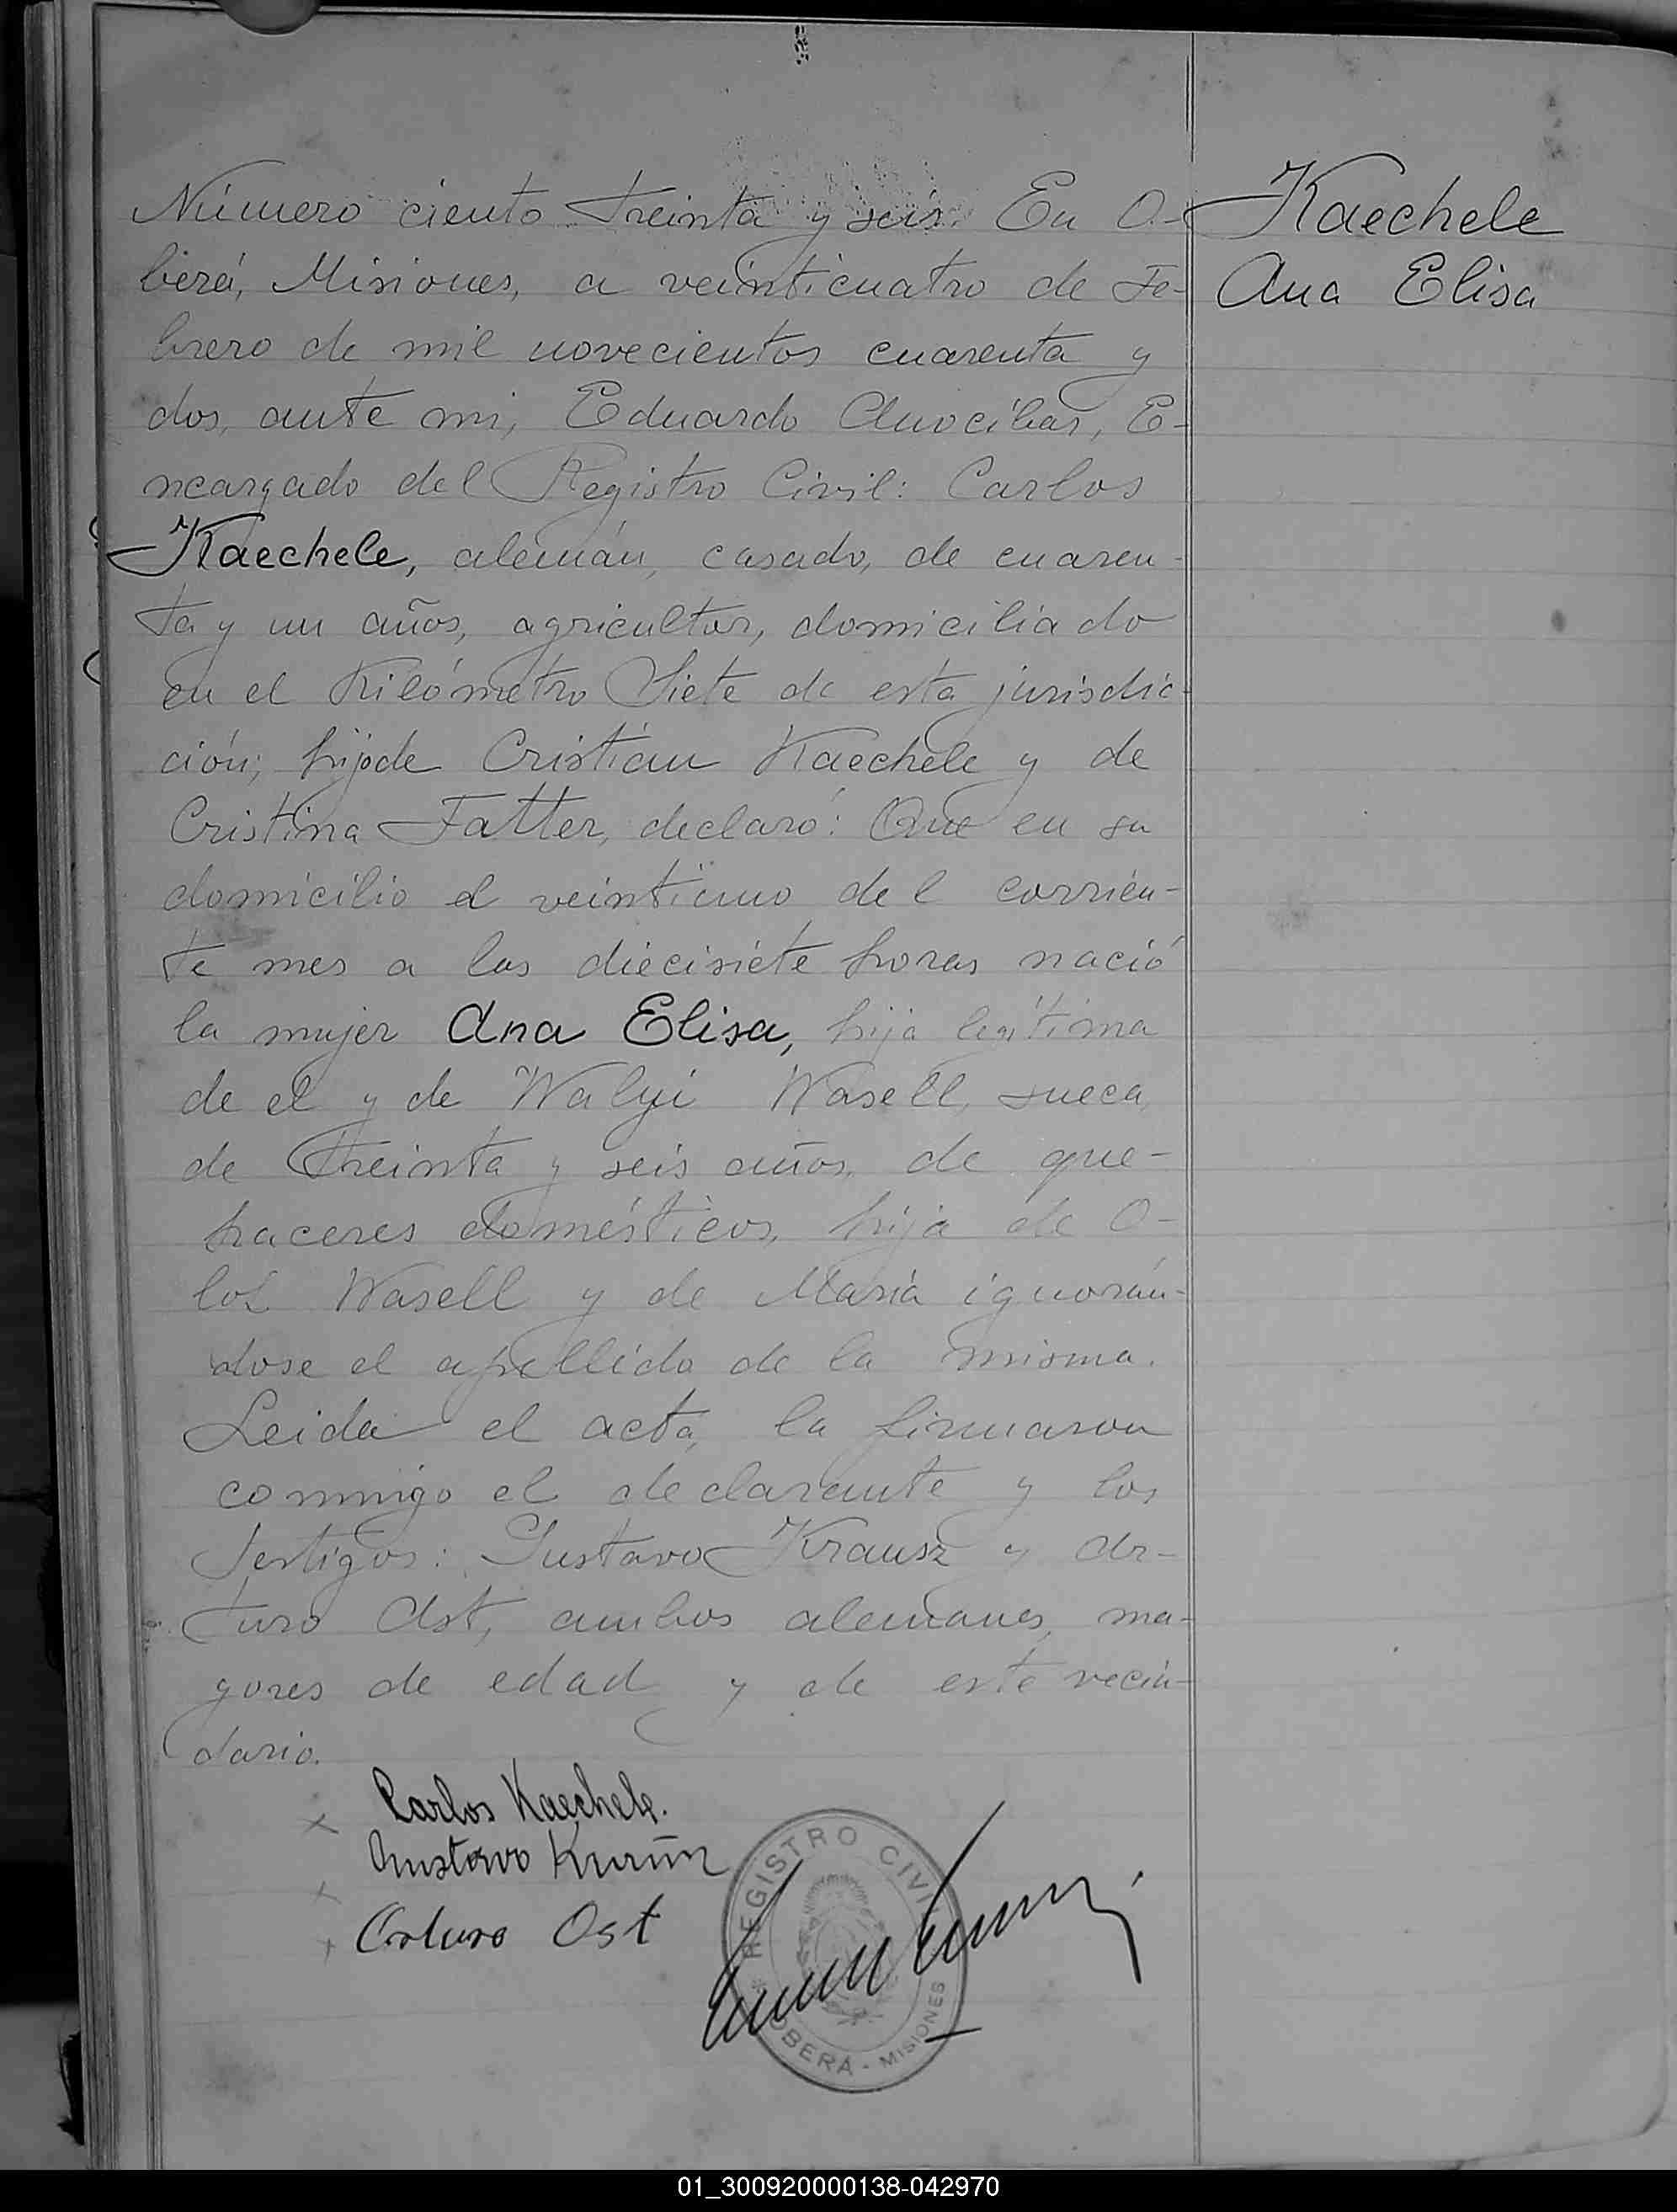 Número ciento treinta y seis. En O-
berá, Misiones, a veinticuatro de Fe-
brero de mil novecientos cuarenta y
dos, ante mi, Eduardo Anocíbar, E-
ncargado del Registro Civil: Carlos
Kaechele, alemán, casado, de cuaren-
ta y un años, agricultor, domiciliado
en el Kilómetro Siete de esta jurisdic-
ción; hijo de Cristián Kaechele y de
Cristina Fatter, declaró: Que en su
domicilio el veintiuno del corrien-
te mes a las diecisiete horas nació
la mujer Ana Elisa, hija legítima
de el y de Walyi Wasell, sueca,
de treinta y seis años, de que-
haceres domésticos, hija de O-
lof Wasell y de María ignorán-
dose el apellido de la misma.
Leida el acta, la firmaron
conmigo el declarante y los
testigos: Gustavo Krausz y Ar-
turo Ost, ambos alemanes, ma-
yores de edad y de este vecin-
dario.
Kaechele
Ana Elisa
Carlos Kaechele.
Gustavo
Arturo Ost
REGISTRO CIVIL
OBERÁ - MISIONES
01_300920000138-042970